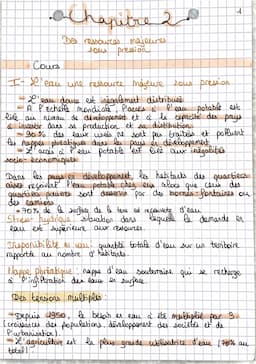 1
Chapitre 2
Des ressources majeures
sous pression
Cours
I - L'eau une ressource majeure sous pression
- L'eau douce est inégalement distribuée
- A l'échelle mondiale, l'accès à l'eau potable est
liée au niveau de développement et à la capacité des pays
à investir dans sa production et sa distribution.
- 90% des eaux usées ne sont pas traitées et polluent
les nappes phréatiques dans les pays en développement
- L'accès à l'eau potable est liée aux inégalités
socio-économiques
Dans les pays en développement, les habitants des quartiers
aisés reçoivent l'eau potable chez eux alors que ceux des
quartiers pauvres sont desservis par des bornes-fontaines ou
des camions
- 70% de la surface de la terre est recouverte d'eau
Stress hydrique : situation dans laquelle la demande en
eau est supérieure aux ressources.
Disponibilité en eau : quantité totale d'eau sur un territoire
rapportée au nombre d'habitants.
Nappe phréatique : nappe d'eau souterraine qui se recharge
à l'infiltration des eaux en surface.
Des tensions multiples
- Depuis 1950, le besoin en eau a été multiplié par 3
(croissances des populations, développement des sociétés et de
l'urbanisation).
- L'agriculture est la plus grande utilisatrice d'eau (70% au
total)